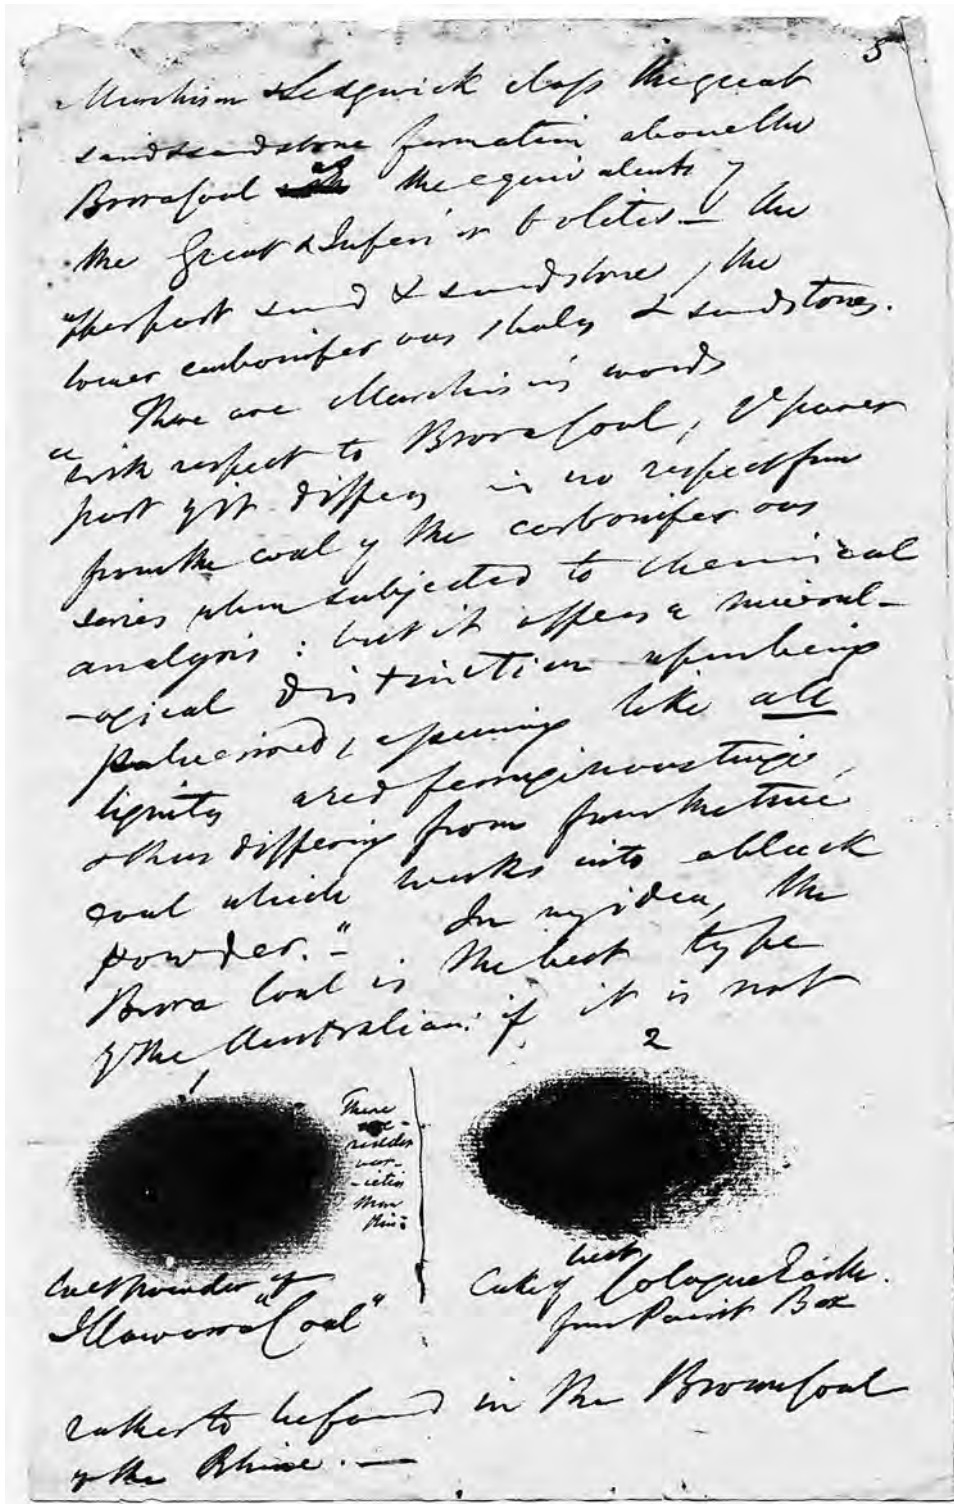 5
Murchison & Sedgwick class the great
sand & sandstone formation above the
Brora Coal as the equivalents of
the Great & Inferior Oolites — the
upper part sand & sandstone, the
lower carboniferous shales & sandstones.
These are Murchison's words
"with respect to Brora Coal, purer
part of it differs in no respect from
from the coal of the carboniferous
series when subjected to chemical
analysis: but it offers a mineral-
-ogical distinction upon being
pulverized, assuming like all
lignites a red ferruginous tinge,
& thus differing from from the true
coal which works into a black
powder." — In my idea, the
Brora Coal is the best type
of the Australian: if it is not
1
2
There
are
redder
var-
-ieties
than
this:
powder of
Illawarra "Coal"
best
Cake of Cologne Earth.
from Paint Box
rather to be found in the Brown Coal
of the Rhine. —